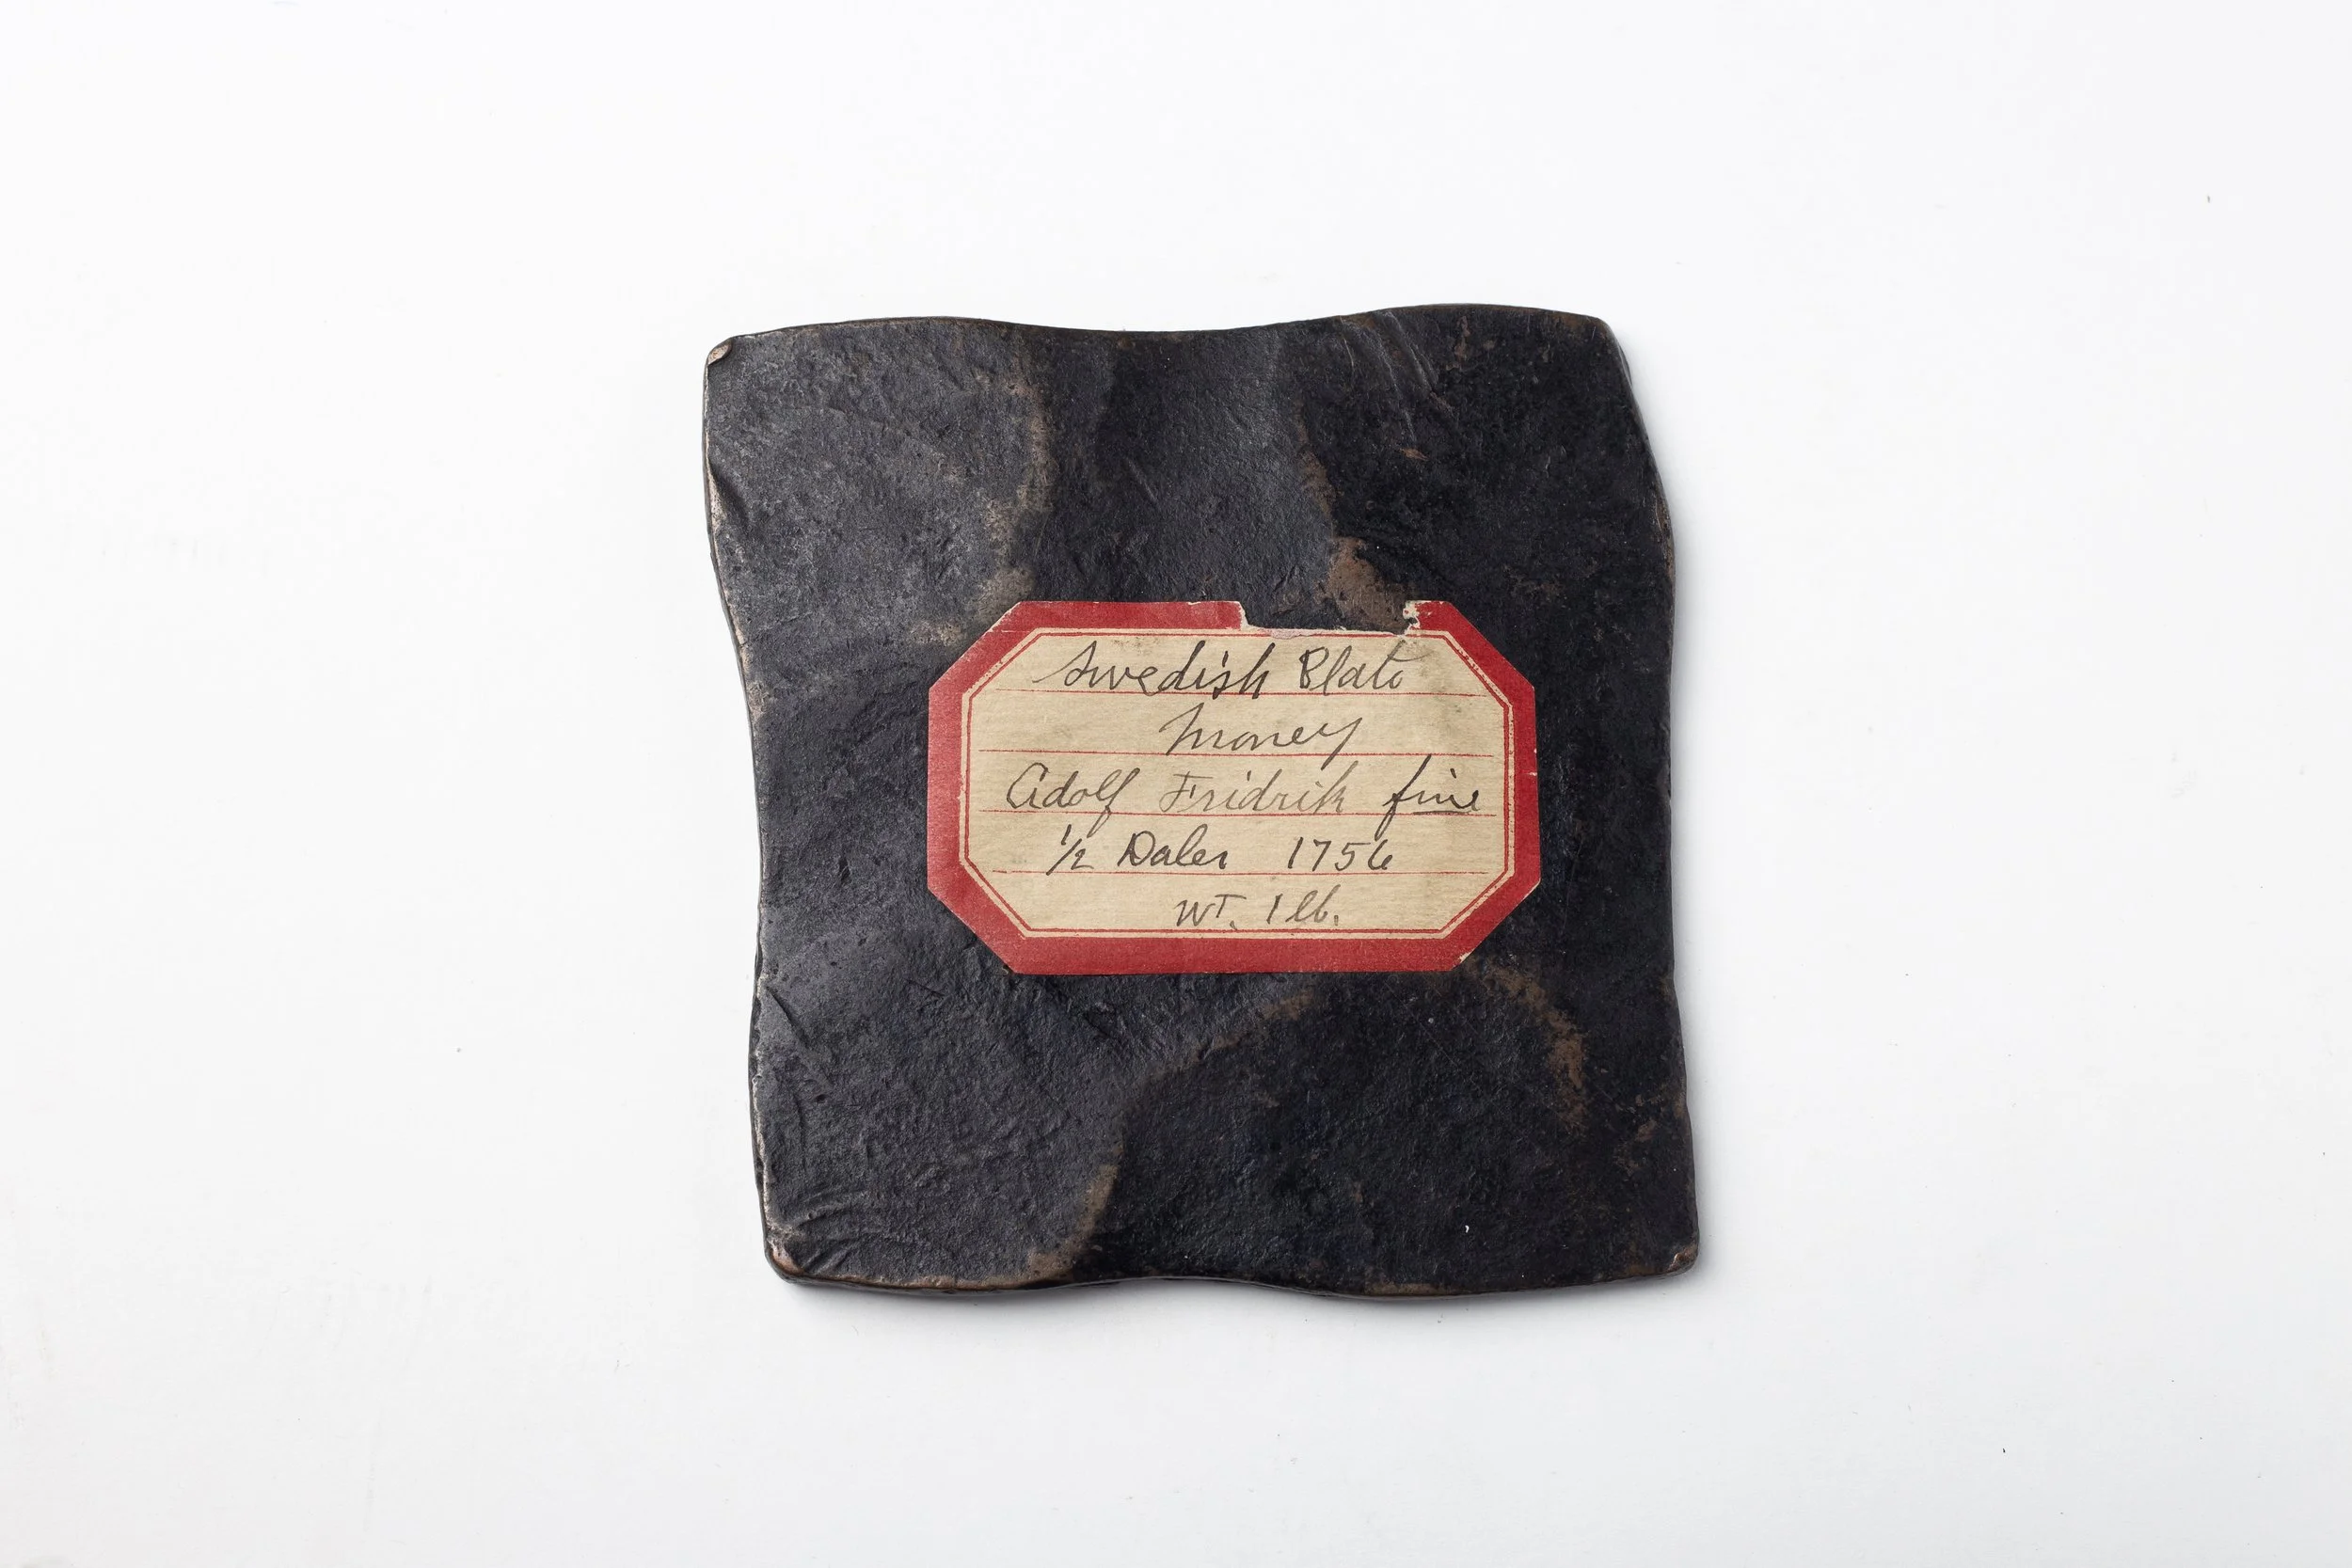 Swedish Plate
Money
Adolf Fridrik fine
1/2 Daler 1756
WT. 1 lb.